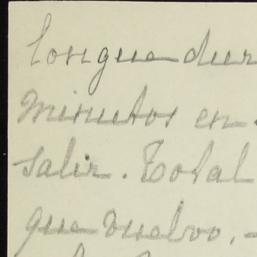 longue dur
minutos en
salir. Total
que vuelvo.-